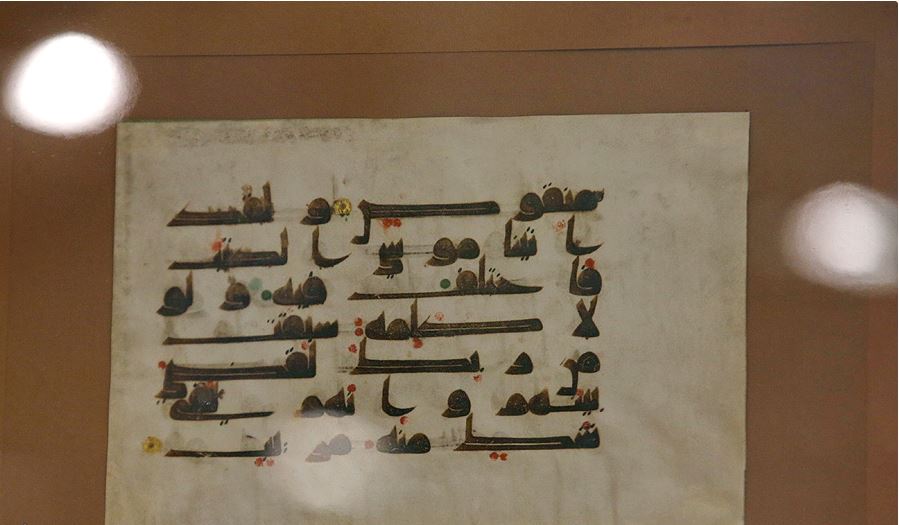 منقوص ولقد
اتينا موسى الكتب
فاختلف فيه ولو
لا كلمة سبقت
من ربك لقضى
بينهم وانهم لفى
شك منه مريب